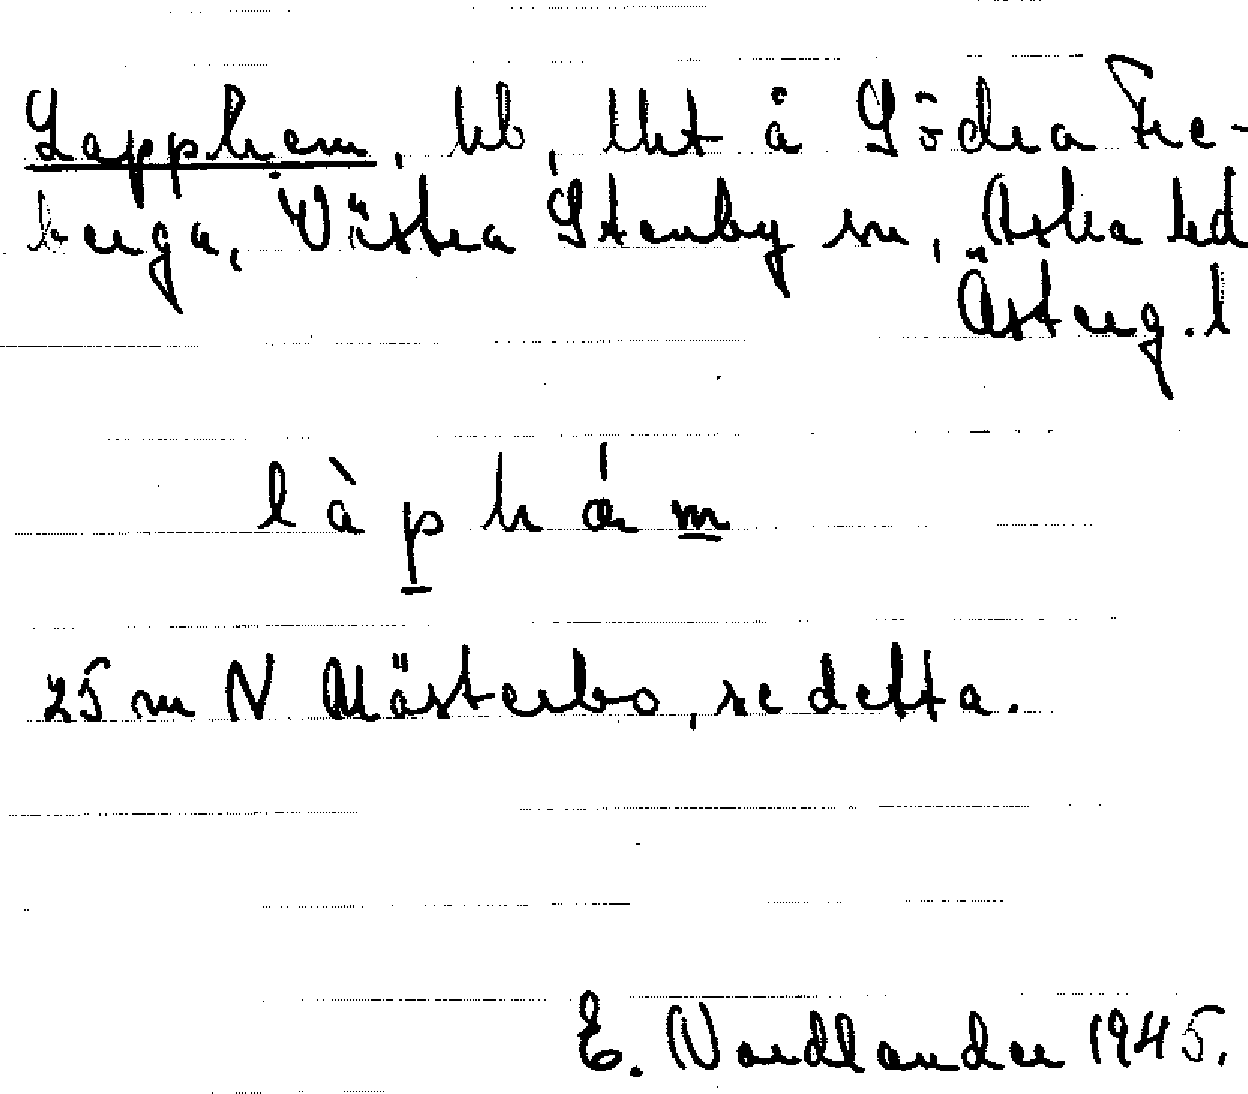 Lapphem, hb, lht å Södra Fre-
berga, Västra Stenby sn, Aska hd
Österg. l
làphǽm
25 m N Mästerbo, se detta.
E. Nordlander 1945.